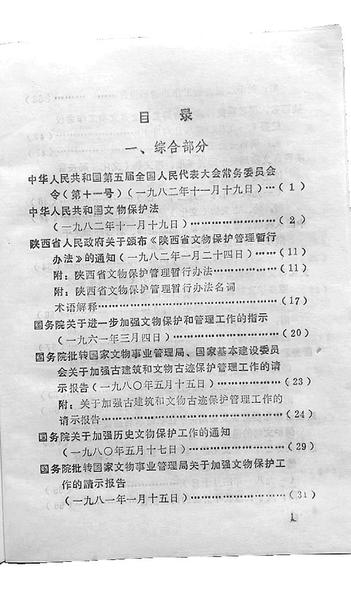 目 录
一、综合部分
中华人民共和国第五届全国人民代表大会常务委员会
令(第十一号)(一九八二年十一月十九日)…(1)
中华人民共和国文物保护法
(一九八二年十一月十九日)……………………(2)
陕西省人民政府关于颁布《陕西省文物保护管理暂行
办法》的通知(一九八二年一月二十四日)……(11)
附:陕西省文物保护管理暂行办法………………(11)
附:陕西省文物保护管理暂行办法名词
术语解释……………………………………………(17)
国务院关于进一步加强文物保护和管理工作的指示
(一九六一年三月四日)…………………………(20)
国务院批转国家文物事业管理局、国家基本建设委员
会关于加强古建筑和文物古迹保护管理工作的请
示报告(一九八〇年五月十五日)………………(23)
附:关于加强古建筑和文物古迹保护管理工作的
请示报告……………………………………………(24)
国务院关于加强历史文物保护工作的通知
(一九八〇年五月十七日)………………………(29)
国务院批转国家文物事业管理局关于加强文物保护工
作的請示报告
(一九八一年一月十五日)………………………(31)
1